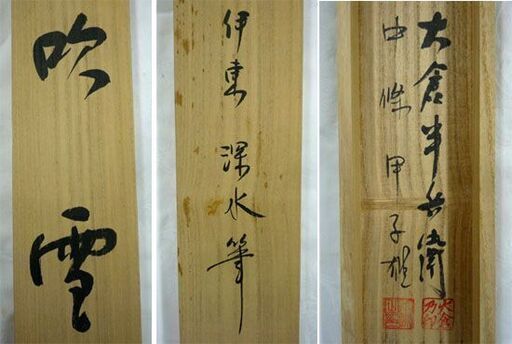 吹雪
伊東深水筆
大倉半兵衛
中條甲子雄